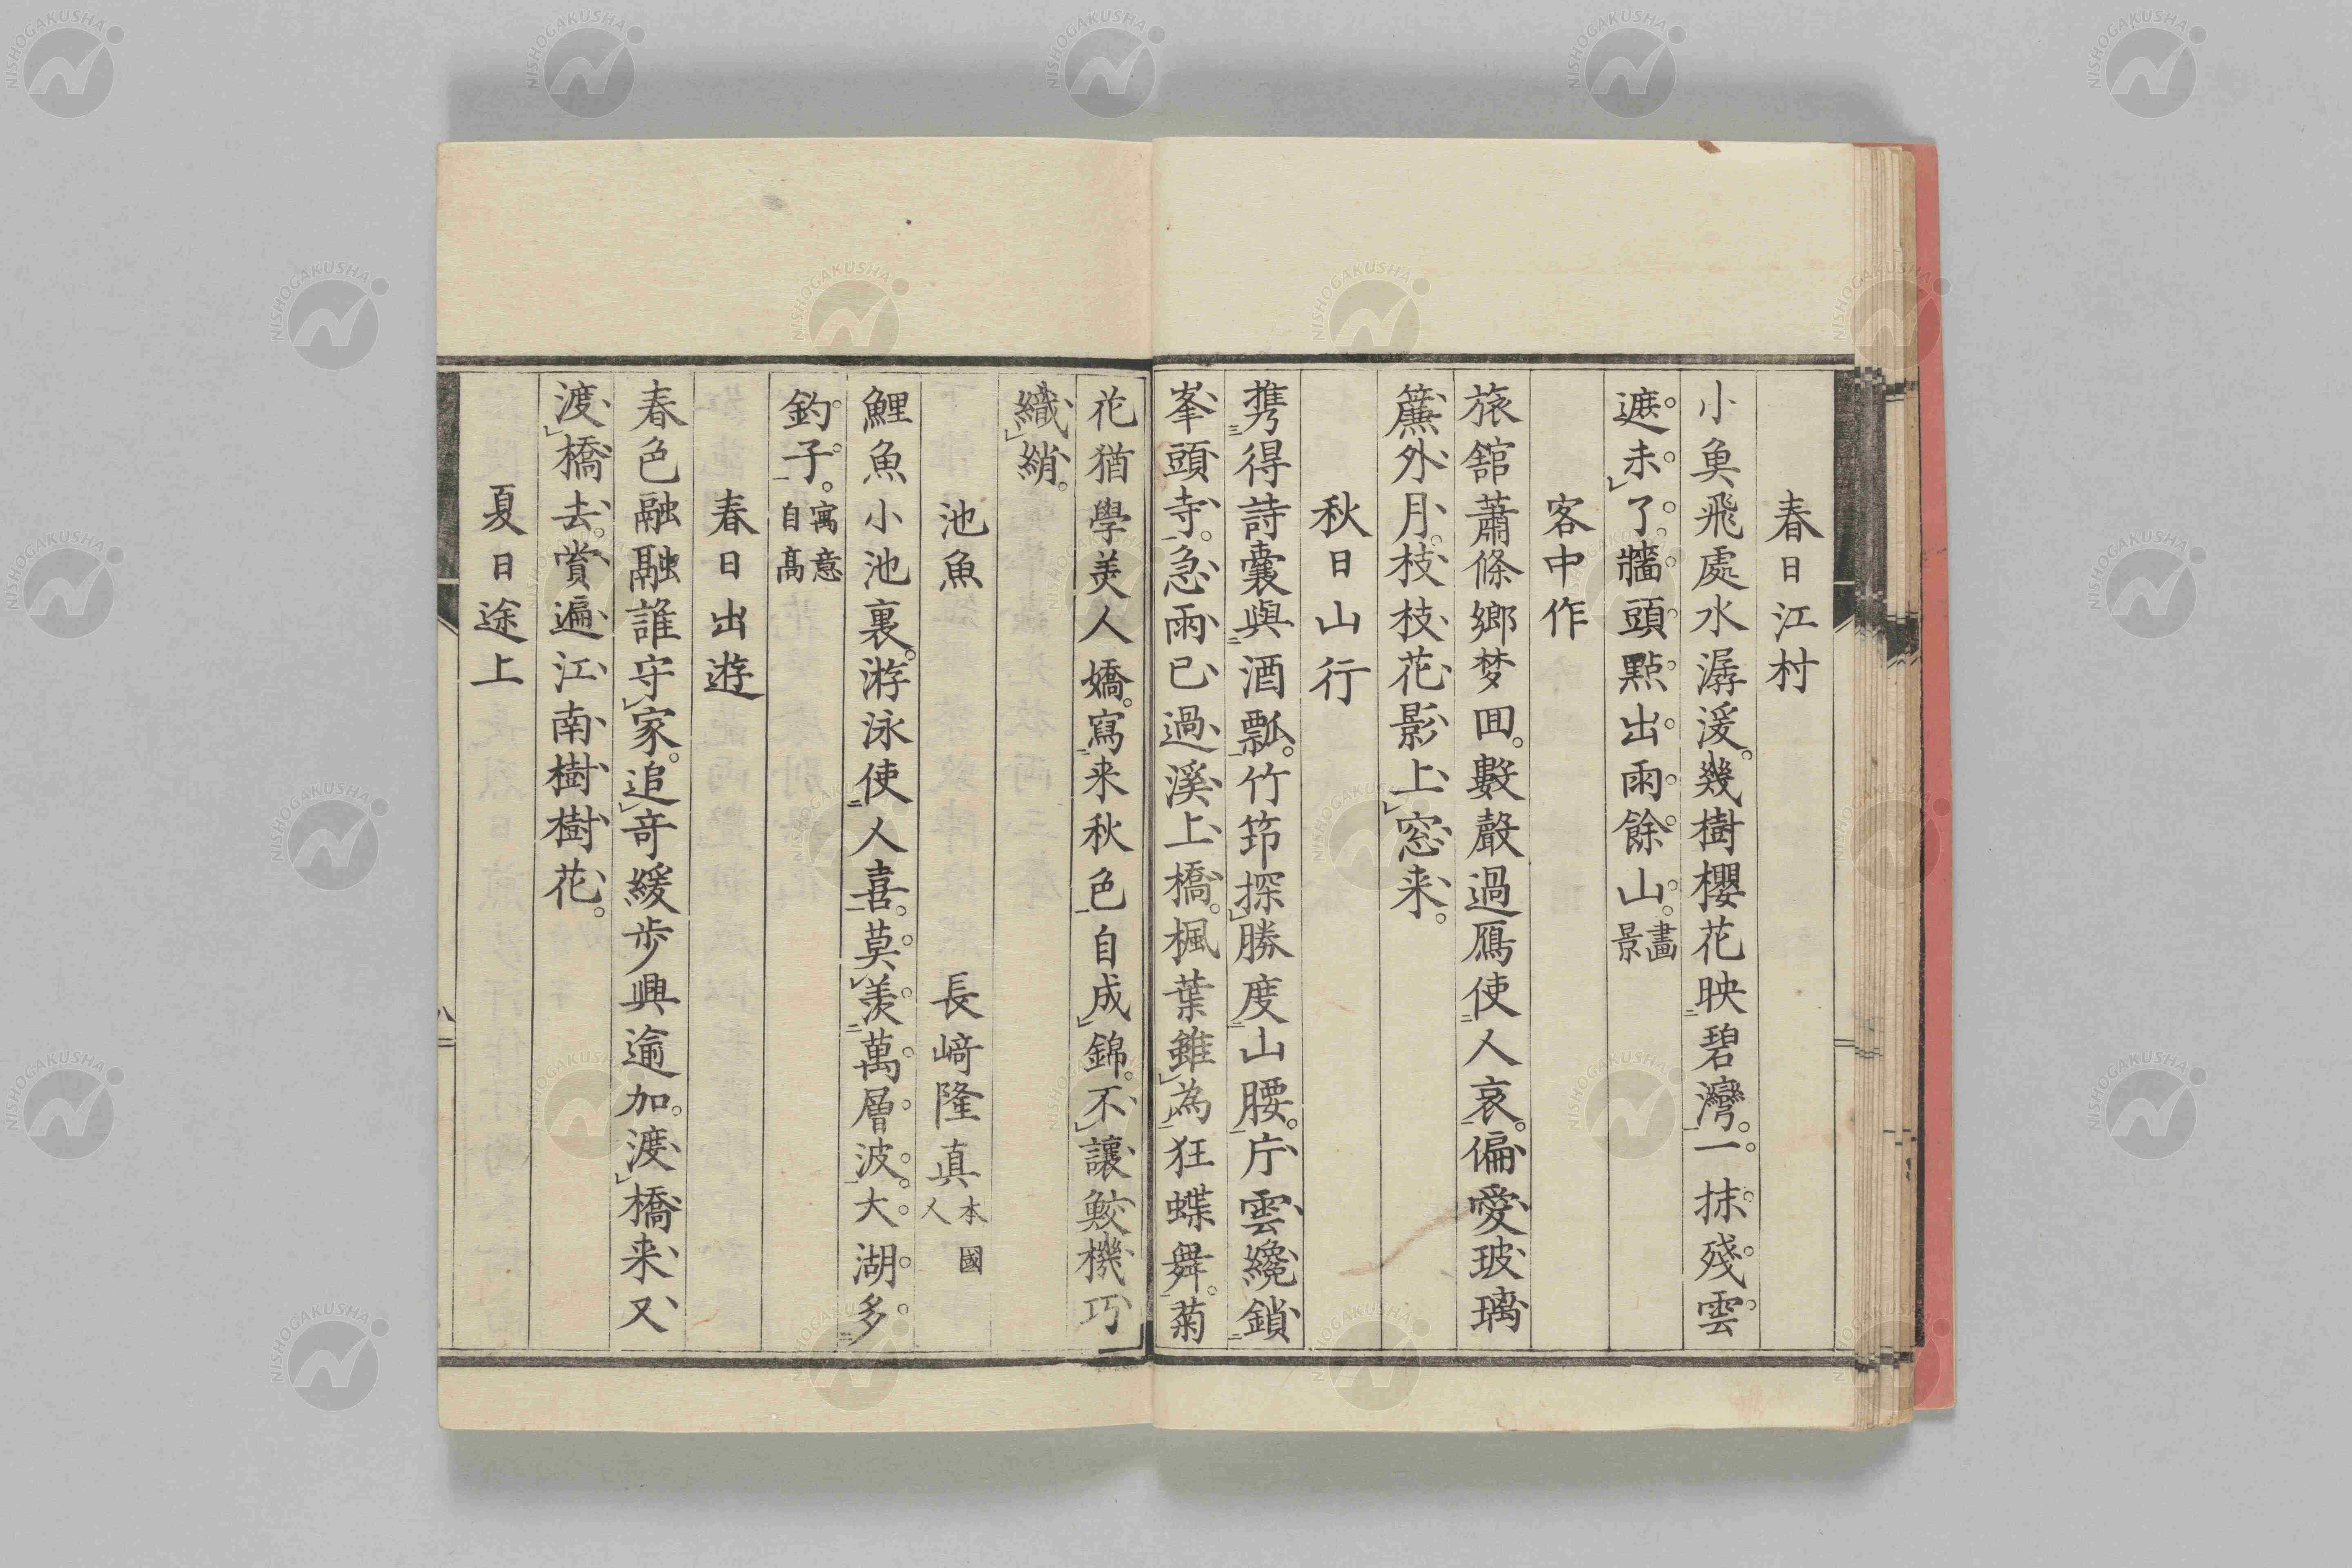 春日江村
小魚飛處水潺湲。幾樹櫻花映碧灣。一抹殘雲
遮未了。牆頭點出雨餘山。畫景
客中作
旅舘蕭條鄉梦囬。數聲過鴈使人哀。偏愛玻璃
簾外月。枝枝花影上窓来。
秋日山行
携得詩囊與酒瓢。竹筇探勝度山腰。片雲纔鎖
峯頭寺。急雨已過溪上橋。楓葉雖為狂蝶舞。菊
花猶學美人嬌。寫来秋色自成錦。不讓鮫機巧
織綃。
池魚 長﨑隆真 本國人
鯉魚小池裏。游泳使人喜。莫羨萬層波。大湖多
釣子。寓意自高
春日出遊
春色融融誰守家。追竒緩步興逾加。渡橋来又
渡橋去。賞遍江南樹樹花。
夏日途上
八
NISHOGAKUSHA